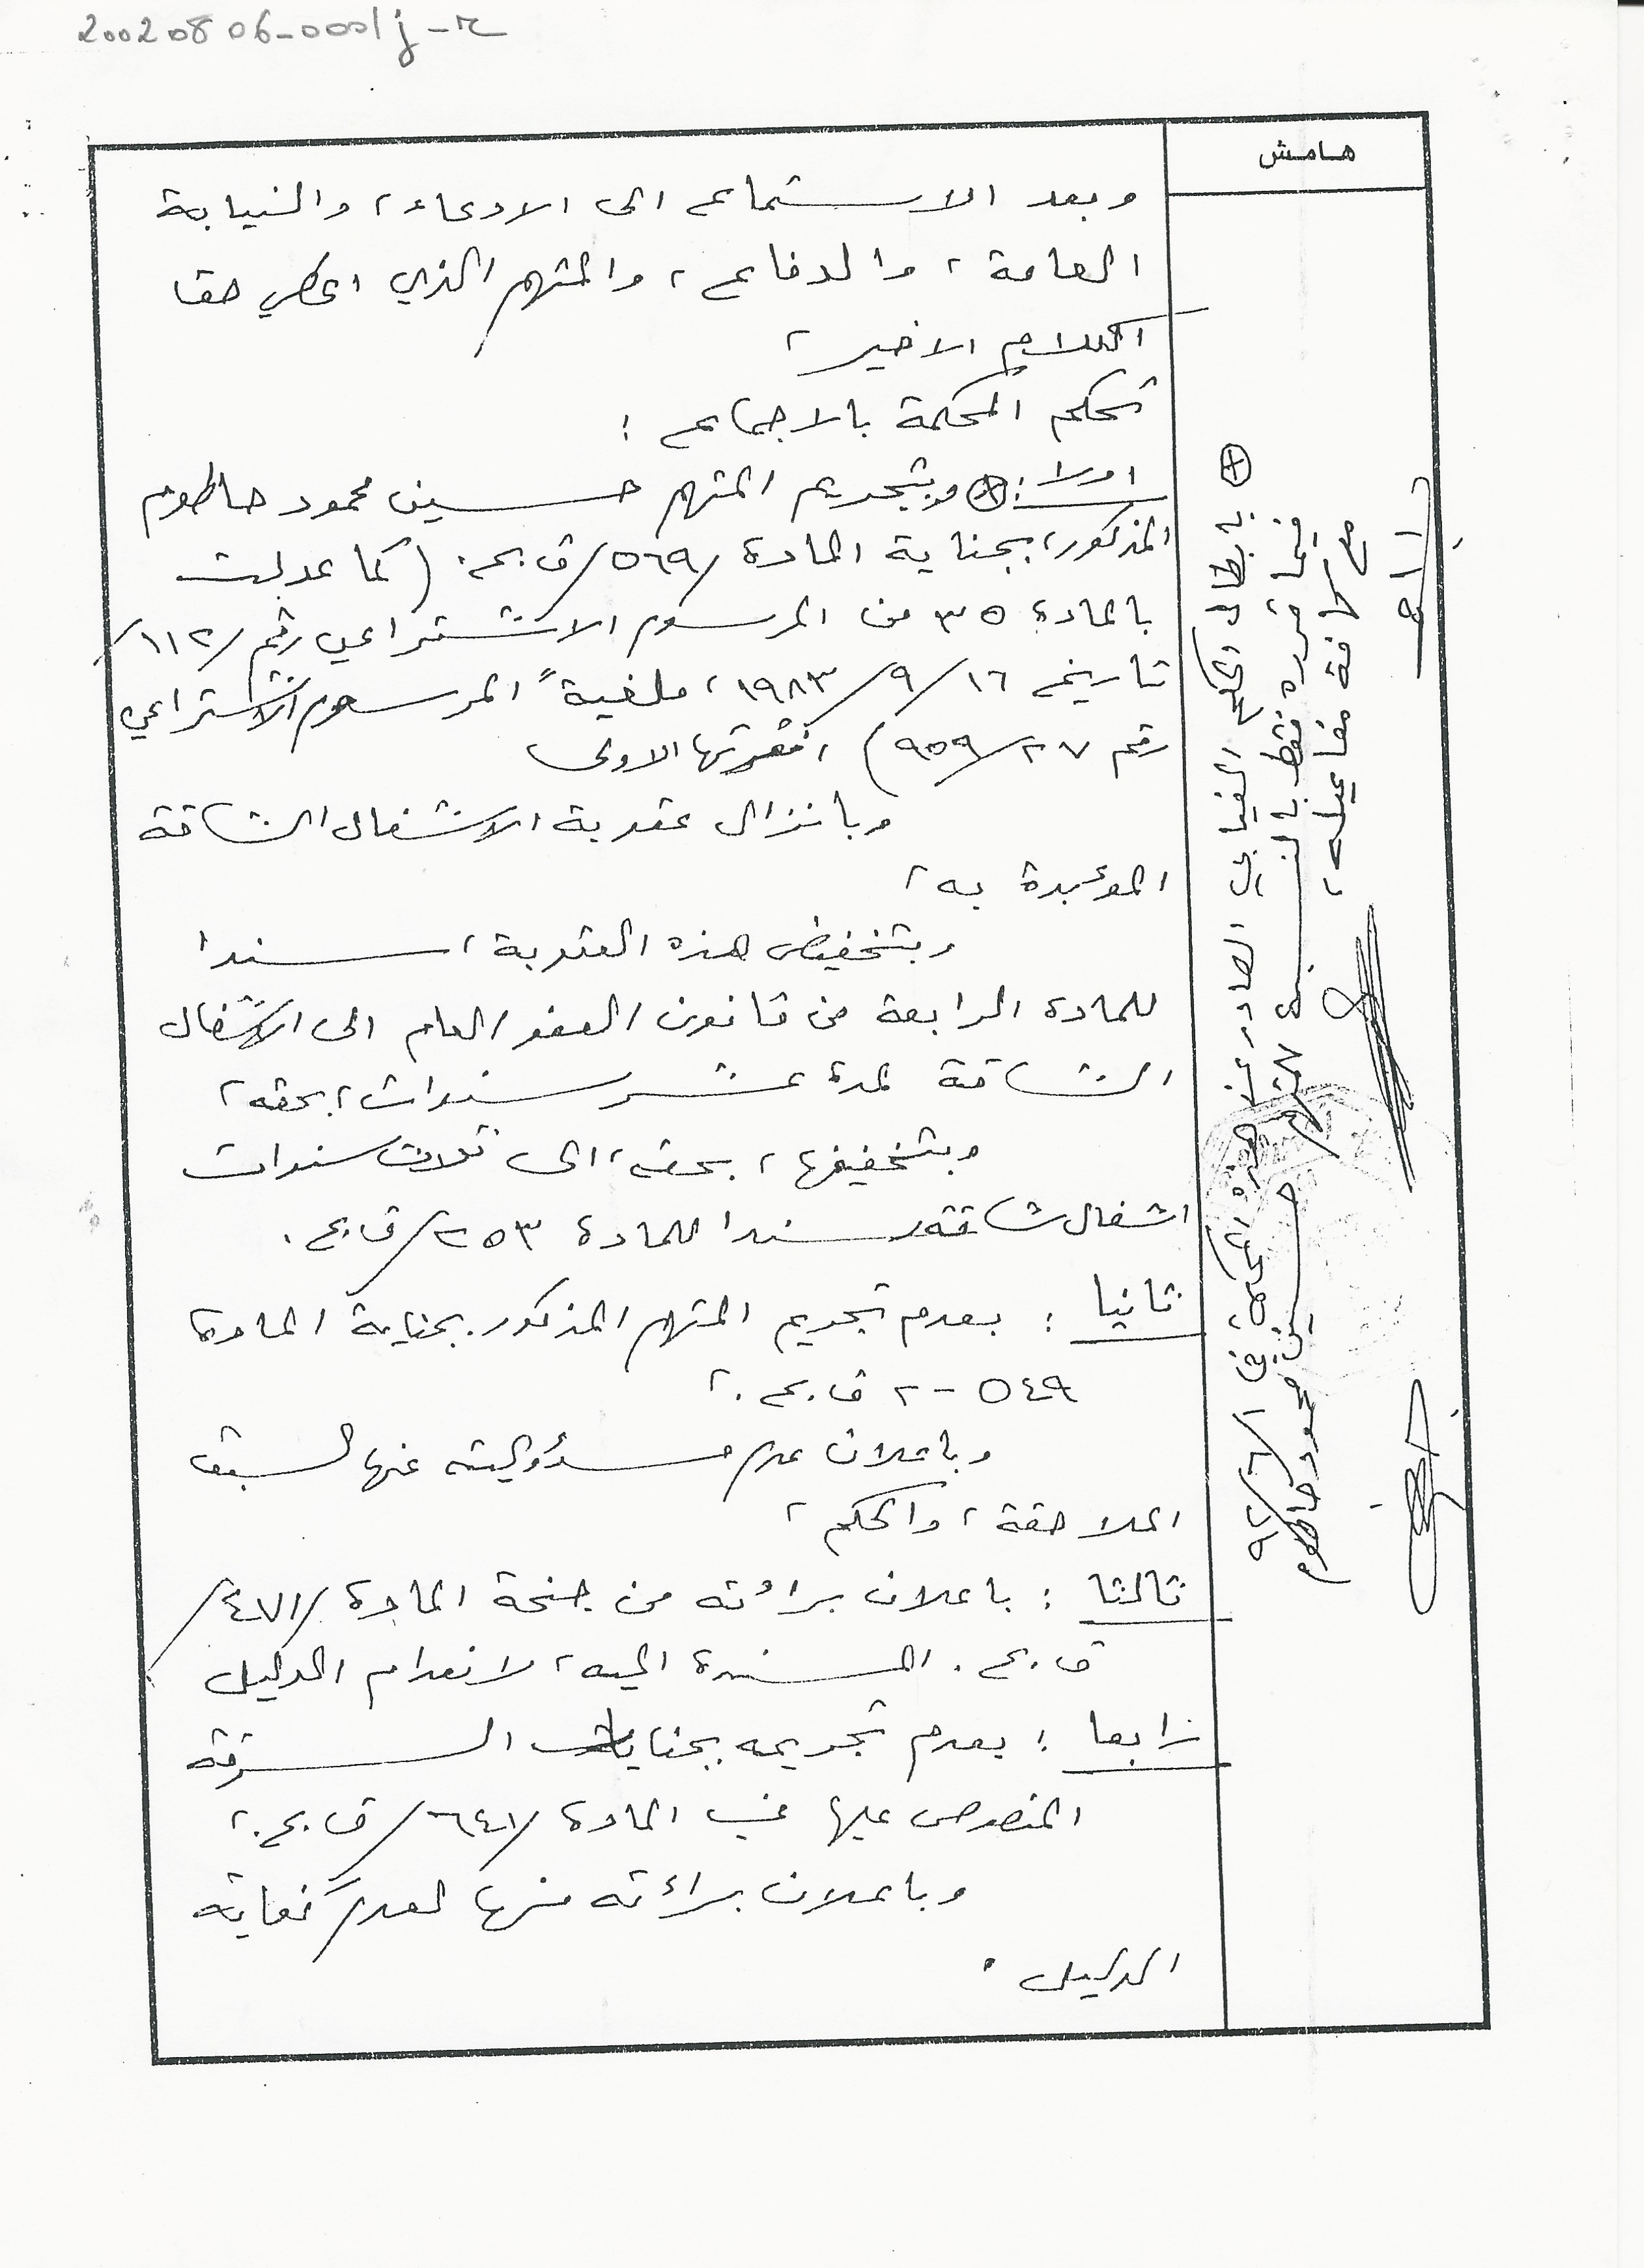 20020806-0001j-r
هامش
وبعد الاستماع الى الادعاء، والنيابة
العامة، والدفاع، والمتهم الذي اعطي حق
الكلام الاخير،
تحكم المحكمة بالاجماع :
اولا : ⊕ وبتجريم المتهم حسين محمود حاطوم
المذكور، بجناية المادة /٥٦٩/ ق.ع. (كما عدلت
بالمادة ٣٥ من المرسوم الاشتراعي رقم /١١٢/
تاريخ ١٦/٩/١٩٨٣، ملغية المرسوم الاشتراعي
رقم ٢٧/٩٥٩) فقرتها الاولى
وبانزال عقوبة الاشغال الشاقة
المؤبدة به،
وبتخفيض هذه العقوبة، سندا
للمادة الرابعة من قانون العفو العام الى الاشغال
الشاقة لمدة عشر سنوات، بحقه،
وبتخفيفها، بحقه، الى ثلاث سنوات
اشغال شاقة سندا للمادة ٢٥٣/ ق.ع.
ثانيا : بعدم تجريم المتهم المذكور بجناية المادة
٥٤٩ - ٢ ق.ع.،
وباعلان عدم مسؤوليته عنها لسبق
الملاحقة، والحكم،
ثالثا : باعلان براءته من جنحة المادة /٤٧١/
ق.ع. المسندة اليه، لانعدام الدليل
رابعا : بعدم تجريمه بجنايات السرقة
المنصوص عليها في المادة /٦٤١/ ق.ع.،
وباعلان براءته منها لعدم كفاية
الدليل.
⊕ بابطال الحكم الغيابي الصادر عن هذه المحكمة في ١/٦/٩٢
فيما قرره فقط بالنسبة للمتهم حسين محمود حاطوم
مع كافة مفاعيله،